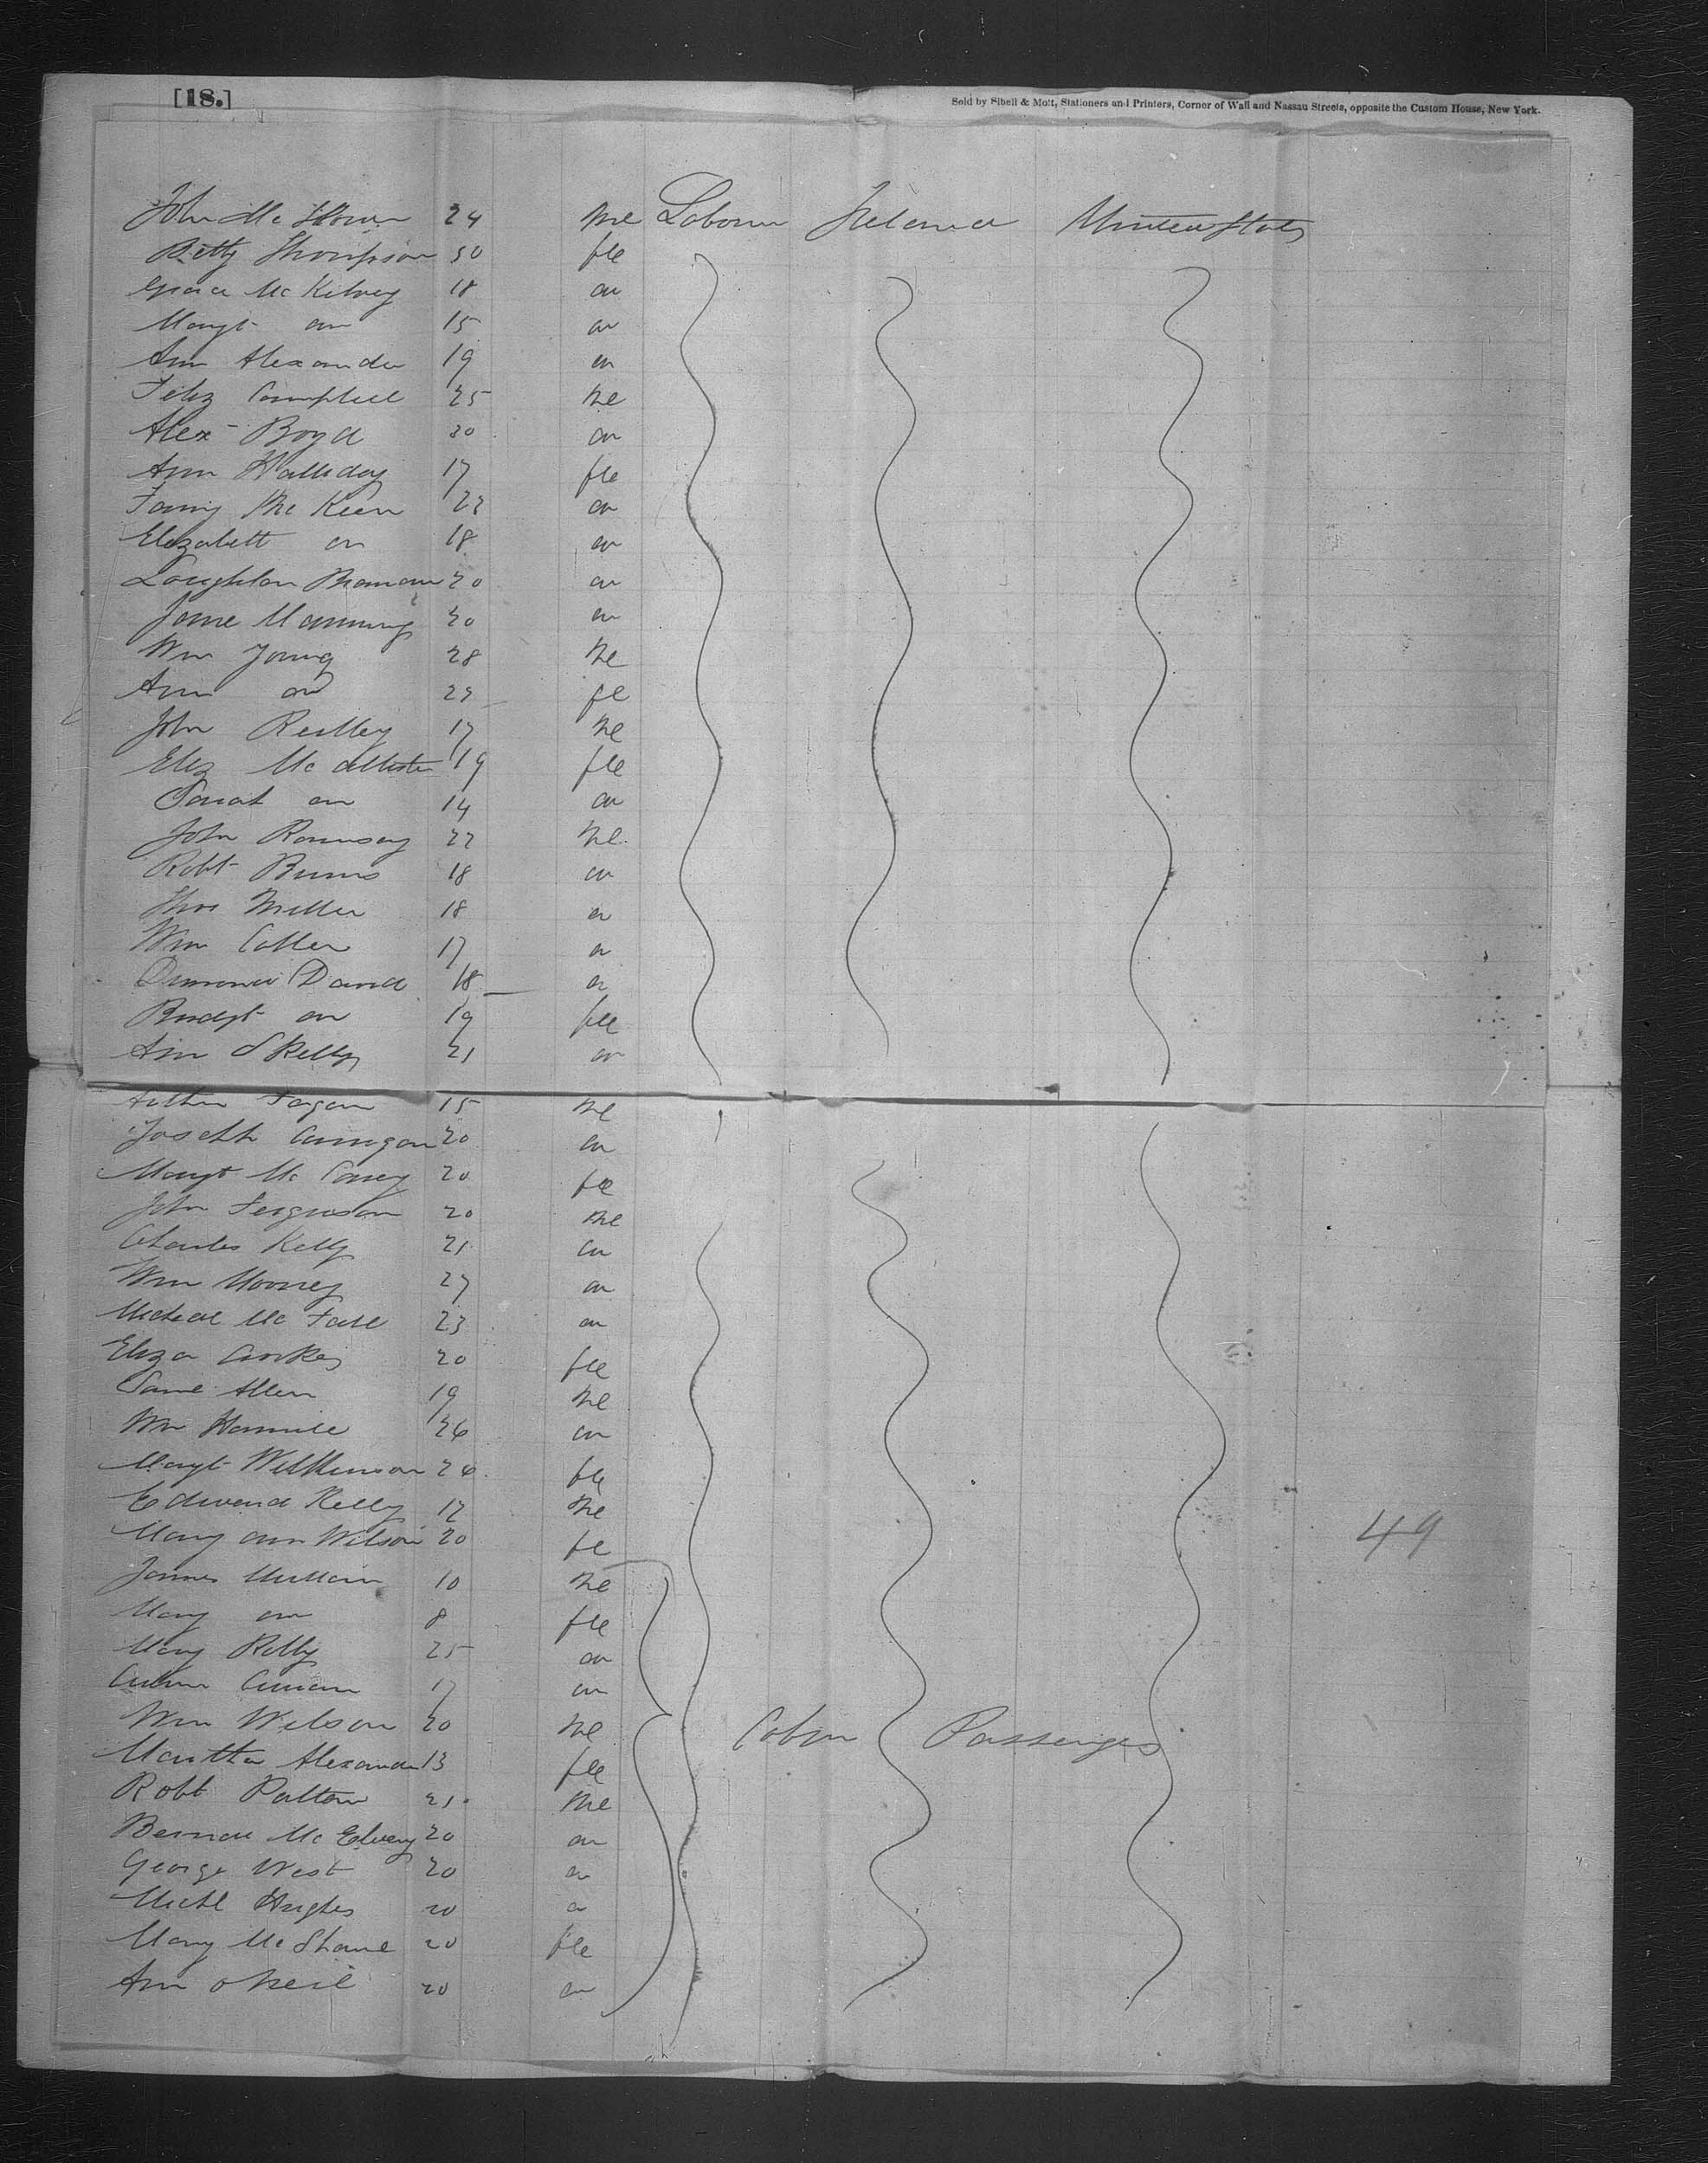 [18.]
Sold by Sibell & Mott, Stationers and Printers, Corner of Wall and Nassau Streets, opposite the Custom House, New York.
John Mc 24 Me Labourer Ireland United States
Betty Thompson 30 fle
Grace Mc Kilvey 18 do
Margt do 15 do
Ann Alexander 19 do
Feliz Campbell 25 Me
Alex Boyd 30 do
Ann Halliday 17 fle
Fanny Mc Keen 22 do
Elizabeth do 18 do
Loughlan 20 do
Jane Manning 20 do
Wm Young 28 Me
Ann do 22 fe
John Reilley 17 Me
Eliz Mc Allister 19 fle
Sarah do 14 do
John Ramsay 22 Me
Robt Burns 18 do
Thos Miller 18 do
Wm 17 do
David 18 do
Bridgt do 19 fle
Ann Skelly 21 do
Arthur Fagan 15 Me
Joseph Carrigan 20 do
Margt Mc 20 fle
John Ferguson 20 Me
Charles Kelly 21 do
Wm Mooney 27 do
Micheal Mc Fall 23 do
Eliza 20 fle
Saml Allen 19 Me
Wm Hamill 26 do
Margt Wilkinson 26 fle
Edward Kelly 12 Me
Mary Ann Wilson 20 fe
James 10 Me
Mary do 8 fle
49
Mary Kelly 25 do
17 do
Wm Wilson 20 Me Cabin Passengers
Martha Alexander 13 fle
Robt Patton 21 Me
Bernard Mc Elveny 20 do
George West 20 do
Michl Hughes 20 do
Mary Mc Shane 20 fle
Ann o Neil 20 do